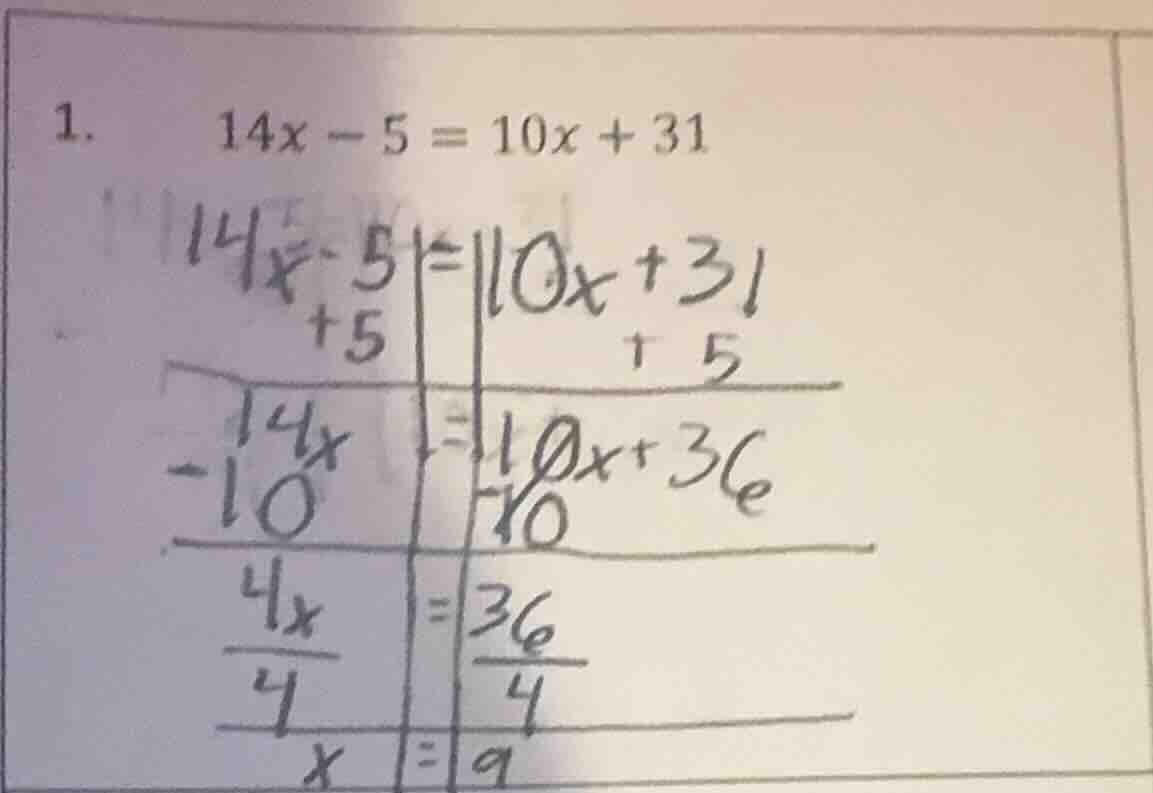 1. 14x − 5 = 10x + 31
14x - 5 = 10x + 31
+5 + 5
14x = 10x + 36
-10 -10
4x = 36
4 4
x = 9